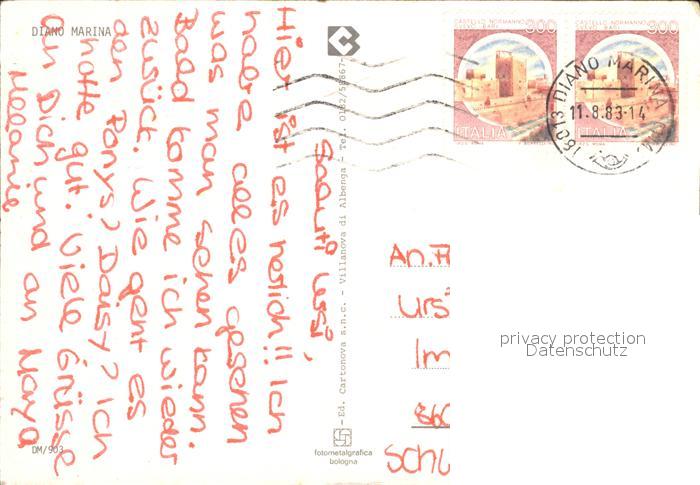 DIANO MARINA
Hier ist es herlich!! Ich
habe alles gesehen
was man sehen kann.
Baad komme ich wieder
zurück. Wie geht es
den Ponys? Daisy? Ich
hoffe gut. Viele Grüsse
an Dich und an Maya
Melanie
DM/903
Ed. Cartonova s.n.c. - Villanova di Albenga - Tel. 0182/
fotometalgrafica
bologna
CASTELLO NORMANNO
SVEVO - BARI
300
ITALIA
CASTELLO NORMANNO
SVEVO - BARI
300
ITALIA
DIANO MARINA
11.8.83-14
An. F
Urs
Im
860
Schü
privacy protection
Datenschutz